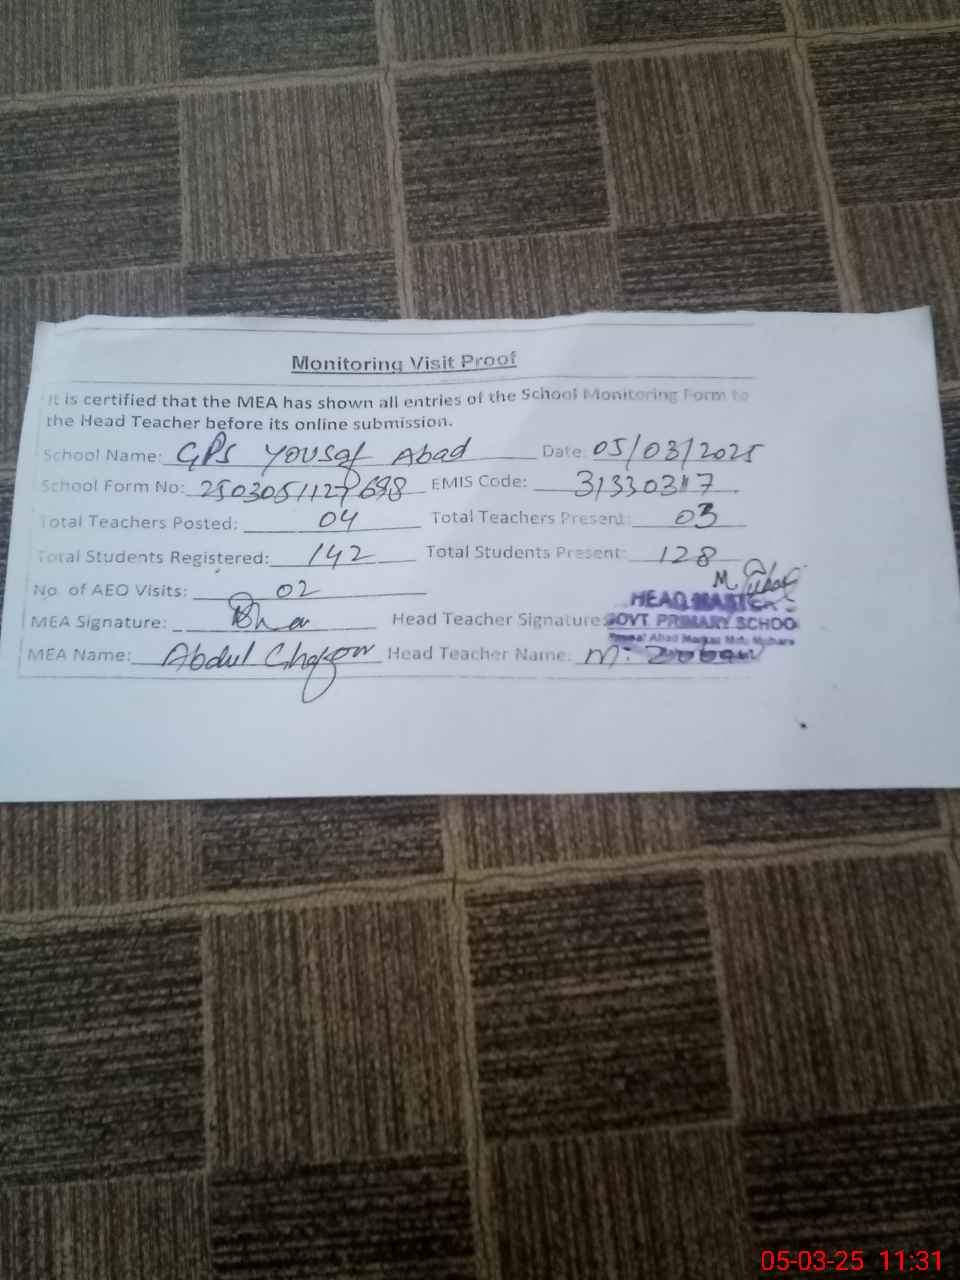 Monitoring Visit Proof
It is certified that the MEA has shown all entries of the School Monitoring Form to
the Head Teacher before its online submission.
School Name: GPS Yousaf Abad Date: 05/03/2025
School Form No: EMIS Code:
Total Teachers Posted: 04 Total Teachers Present: 03
Total Students Registered: 142 Total Students Present: 128
No. of AEO Visits: 02
HEAD MASTER
MEA Signature: Head Teacher Signature: GOVT PRIMARY SCHOO
MEA Name: Abdul Head Teacher Name: M.
05-03-25 11:31